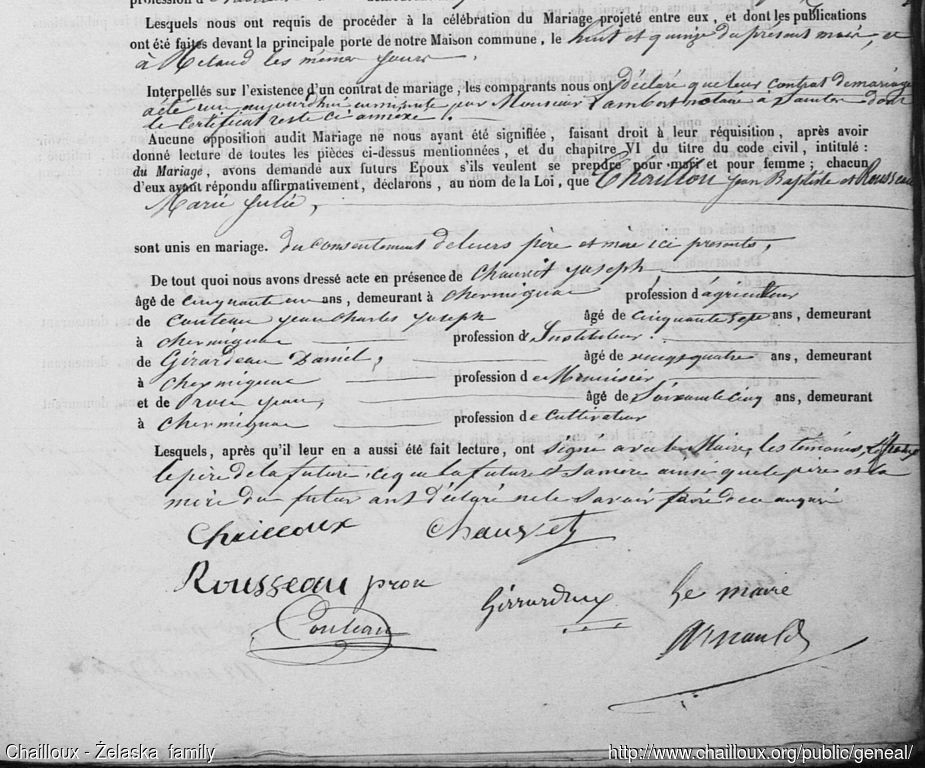 Lesquels nous ont requis de procéder à la célébration du Mariage projeté entre eux, et dont les publications
ont été faites devant la principale porte de notre Maison commune, le huit et quinze du présent mois, et
à les mêmes jours.
Interpellés sur l'existence d'un contrat de mariage, les comparants nous ont déclaré que leur contrat de mariage
a été aujourd'hui en minute par Monsieur Lambert notaire à dont
le certificat reste ci annexé.
Aucune opposition audit Mariage ne nous ayant été signifiée, faisant droit à leur réquisition, après avoir
donné lecture de toutes les pièces ci-dessus mentionnées, et du chapitre VI du titre du code civil, intitulé :
du Mariage, avons demandé aux futurs Epoux s'ils veulent se prendre pour mari et pour femme; chacun
d'eux ayant répondu affirmativement, déclarons, au nom de la Loi, que Chaillou Jean Baptiste et Rousseau
Marie Julie,
sont unis en mariage. du consentement de leurs père et mère ici présents,
De tout quoi nous avons dressé acte en présence de Chauvet Joseph
âgé de cinquante un ans, demeurant à Chermignac profession d'agriculteur
de Couteau Jean Charles Joseph âgé de cinquante sept ans, demeurant
à Chermignac profession d'Instituteur.
de Girardeau Daniel, âgé de vingt quatre ans, demeurant
à Chermignac profession de Menuisier
et de Prou Jean, âgé de Soixante cinq ans, demeurant
à Chermignac profession de Cultivateur
Lesquels, après qu'il leur en a aussi été fait lecture, ont signé avec le Maire, les témoins,
le père de la future. ce que la future et sa mère ainsi que le père et la
mère du futur ont déclaré ne le Savoir faire de ce
Chailloux Chauvet
Rousseau prou
Couteau Girrardeux Le maire
Arnauld
Chailloux - Żelaska family
http://www.chailloux.org/public/geneal/